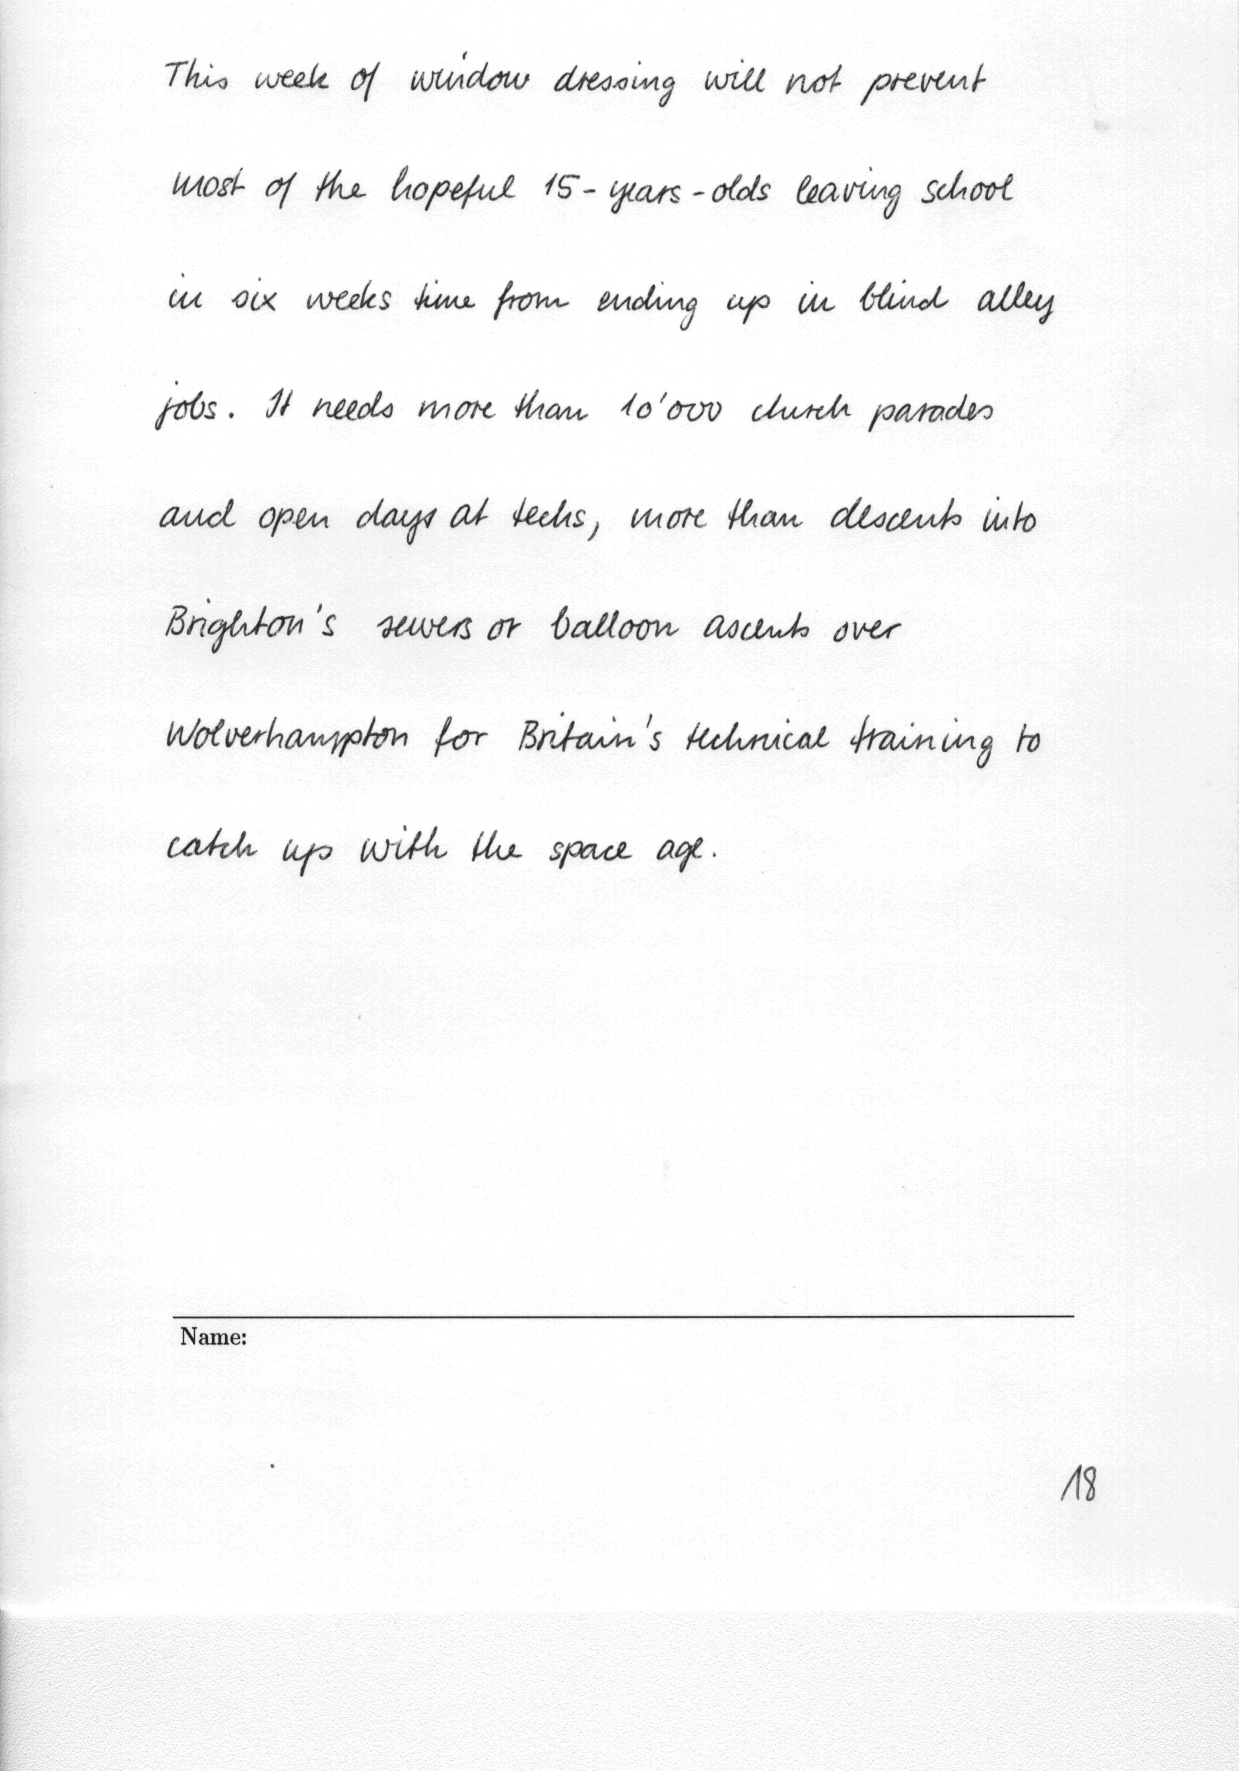 This week of window dressing will not prevent
most of the hopeful 15-years-olds leaving school
in six weeks time from ending up in blind alley
jobs. It needs more than 10'000 church parades
and open days at techs, more than descents into
Brighton's sewers or balloon ascents over
Wolverhampton for Britain's technical training to
catch up with the space age.
Name:
18